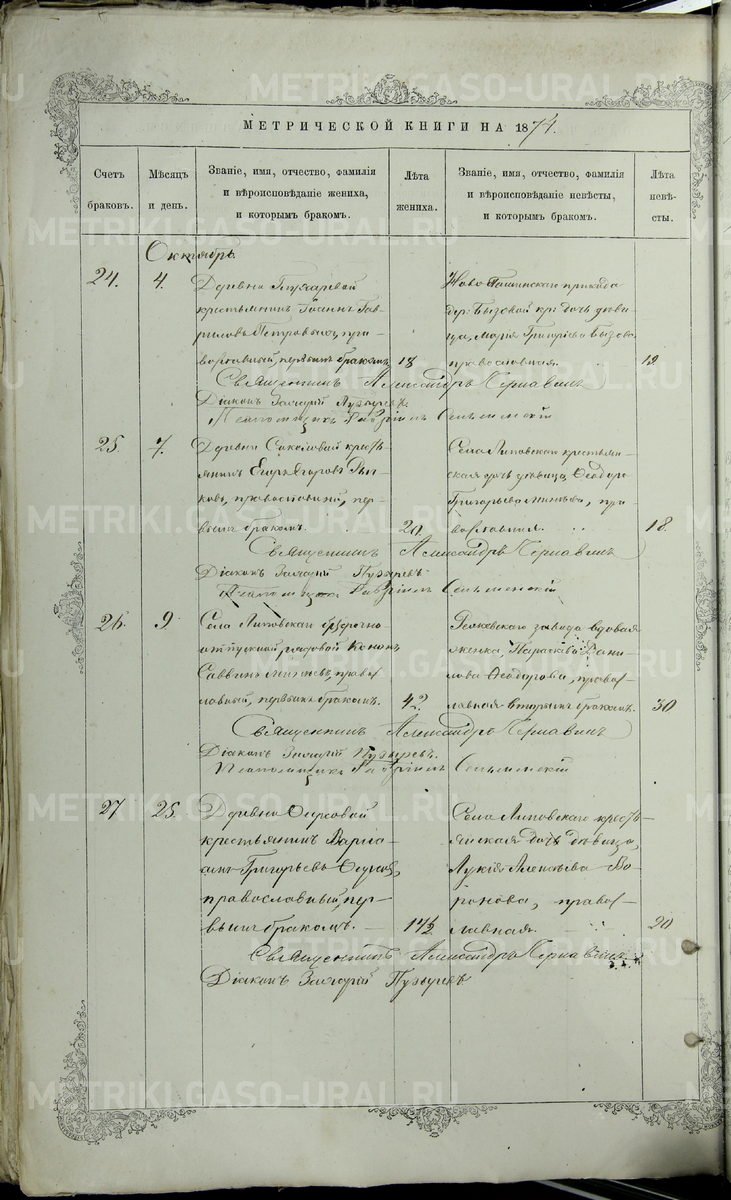 МЕТРИЧЕСКОЙ КНИГИ НА 1874.
Счетъ браковъ.
Мѣсяцъ и день.
Званіе, имя, отчество, фамилія
и вѣроисповѣданіе жениха,
и которымъ бракомъ.
Лѣта жениха.
Званіе, имя, отчество, фамилія
и вѣроисповѣданіе невѣсты,
и которымъ бракомъ.
Лѣта невѣ-
сты.
Октябрь.
24. 4.
Деревни
крестьянинъ Іоаннъ Гав-
риловъ Петровыхъ, пра-
вославный, первымъ бракомъ 18
Ново-Пашинскаго прихода
дер. Бызовой кр. дочь дѣви-
ца, Марія Григорьева Бызова,
православная. 19.
Священникъ Александръ
Діаконъ Захарій Пузыревъ
Псаломщикъ Гавріилъ
25. 7.
Деревни Соколовой кресть-
янинъ Егоръ Егоровъ
православный, пер-
вымъ бракомъ. 20
Села Липовскаго крестьян-
ская дочь дѣвица, Ѳеодора
Григорьева Минѣева, пра-
вославная. 18.
Священникъ Александръ
Діаконъ Захарій Пузыревъ
Псаломщикъ Гавріилъ
26. 9
Села Липовскаго безсрочно
отпускной рядовой Кононъ
Саввинъ Минѣевъ, право-
славный, первымъ бракомъ. 42
Режевскаго завода вдовая
женка, Параскева Дани-
лова Ѳедорова, право-
славная вторымъ бракомъ. 30
Священникъ Александръ
Діаконъ Захарій Пузыревъ
Псаломщикъ Гавріилъ
27 25.
Деревни
крестьянинъ Варла-
амъ Григорьевъ
православный, пер-
вымъ бракомъ. 17½
Села Липовскаго кресть-
янская дочь дѣвица,
Лукія Алексѣева Во-
ронова, право-
славная. 20
Священникъ Александръ
Діаконъ Захарій Пузыревъ
METRIKI.GASO-URAL.RU